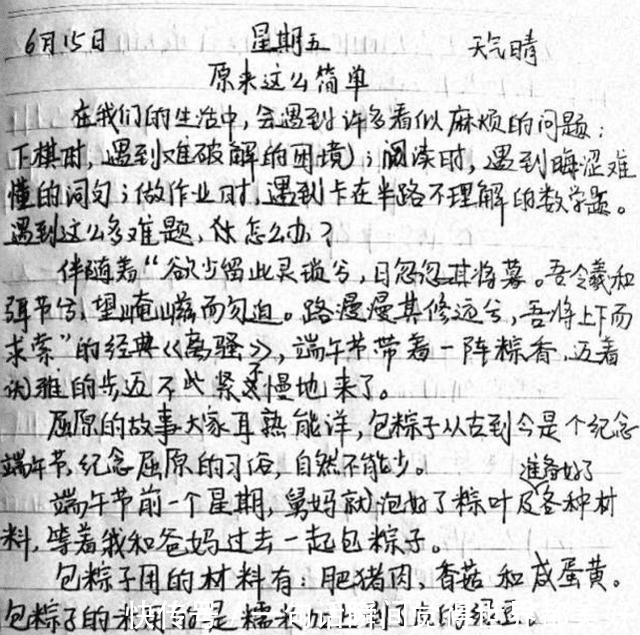 6月15日 星期五 天气晴
原来这么简单
在我们的生活中,会遇到许多看似麻烦的问题:
下棋时,遇到难破解的困境;阅读时,遇到晦涩难
懂的词句;做作业时,遇到卡在半路不理解的数学题。
遇到这么多难题,你怎么办?
伴随着“欲少留此灵琐兮,日忽忽其将暮。吾令羲和
弭节兮,望崦嵫而勿迫。路漫漫其修远兮,吾将上下而
求索”的经典《离骚》,端午节带着一阵粽香,迈着
优雅的步迈不此紧不慢地来了。
屈原的故事大家耳熟能详,包粽子从古到今是个纪念
端午节,纪念屈原的习俗,自然不能少。
准备好了
端午节前一个星期,舅妈就泡好了粽叶及各种材
料,等着我和爸妈过去一起包粽子。
包粽子用的材料有:肥猪肉,香菇和咸蛋黄。
包粽子的米用的是糯米